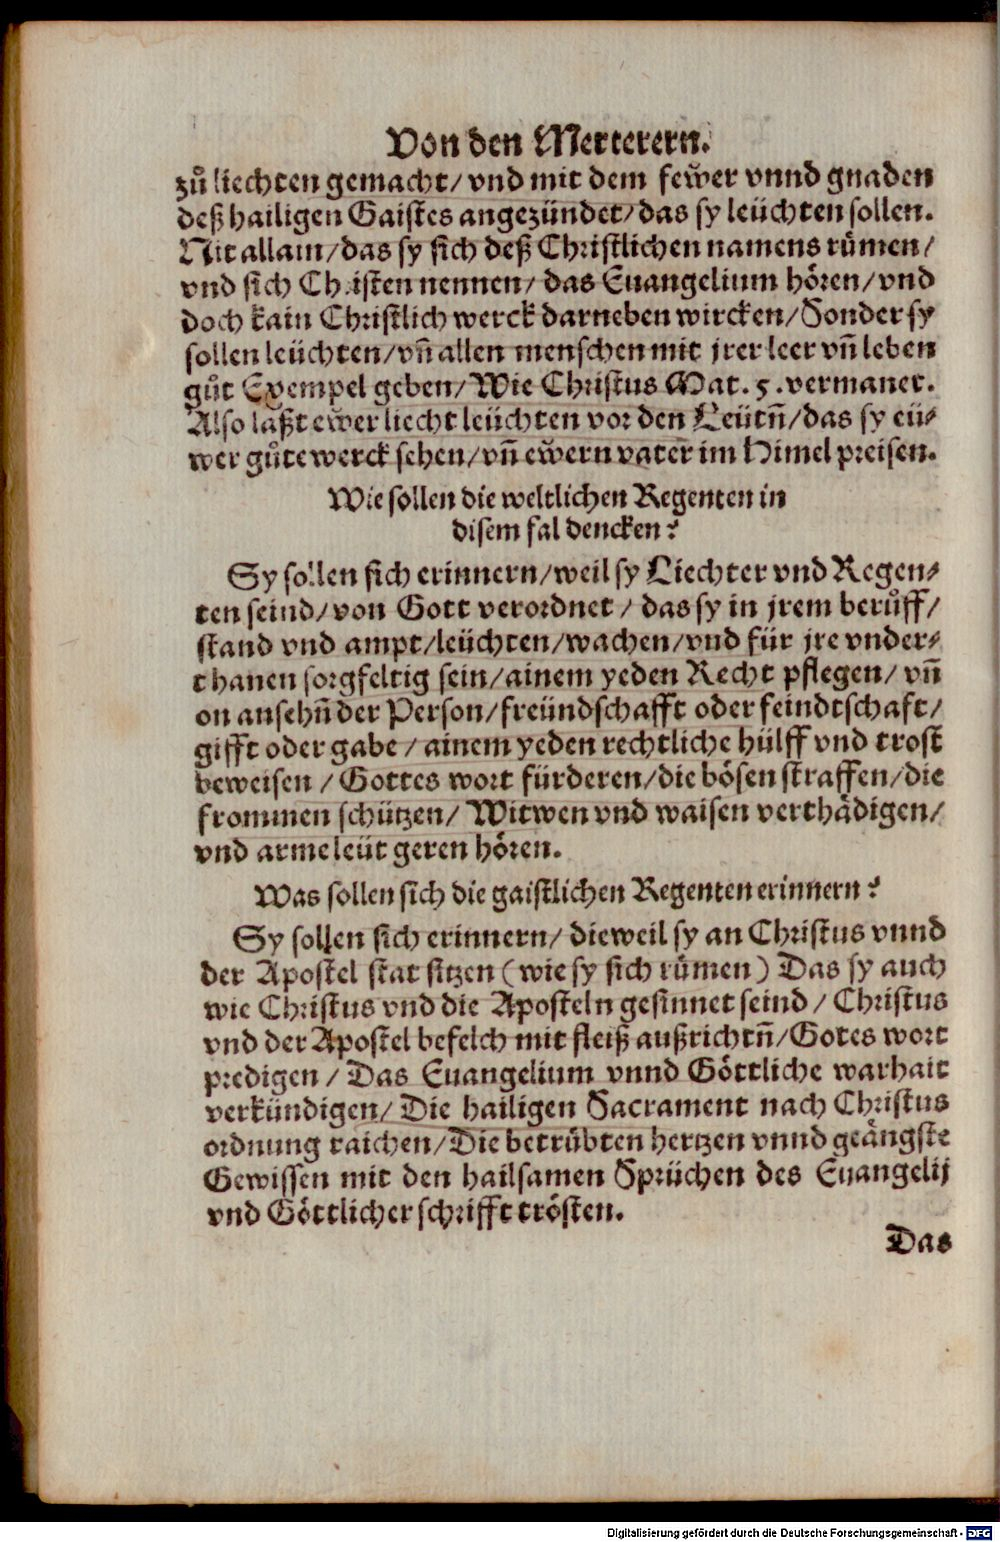 Von den Merterern.
zů liechten gemacht/ vnd mit dem fewͦer vnnd gnaden
deß hailigen Gaistes angezündet/ das sy leüchten sollen.
Nit allain/ das sy sich deß Christlichen namens růmen/
vnd sich Christen nennen/ das Euangelium hören/ vnd
doch kain Christlich werck darneben wircken/ Sonder sy
sollen leüchten/ vn̄ allen menschen mit jrer leer vn̄ leben
gůt Exempel geben/ Wie Christus Mat. 5. vermanet.
Also laßt ewͦer liecht leüchten vor den Leütn̄/ das sy eü⸗
wer gůte werck sehen/ vn̄ ewͦern vater im Himel preisen.
Wie sollen die weltlichen Regenten in
disem fal dencken?
Sy sollen sich erinnern/ weil sy Liechter vnd Regen⸗
ten seind/ von Gott verordnet/ das sy in jrem berůff/
stand vnd ampt/ leüchten/ wachen/ vnd für jre vnder⸗
thanen sorgfeltig sein/ ainem yeden Recht pflegen/ vn̄
on ansehn̄ der Person/ freündschafft oder feindtschaft/
gifft oder gabe/ ainem yeden rechtliche hülff vnd trost
beweisen/ Gottes wort fürderen/ die bösen straffen/ die
frommen schützen/ Witwen vnd waisen verthädigen/
vnd arme leüt geren hören.
Was sollen sich die gaistlichen Regenten erinnern?
Sy sollen sich erinnern/ dieweil sy an Christus vnnd
der Apostel stat sitzen (wie sy sich růmen) Das sy auch
wie Christus vnd die Aposteln gesinnet seind/ Christus
vnd der Apostel befelch mit fleiß außrichtn̄/ Gotes wort
predigen/ Das Euangelium vnnd Göttliche warhait
verkündigen/ Die hailigen Sacrament nach Christus
ordnung raichen/ Die betrübten hertzen vnnd geängste
Gewissen mit den hailsamen Sprüchen des Euangelij
vnd Göttlicher schrifft trösten.
Das
Digitalisierung gefördert durch die Deutsche Forschungsgemeinschaft - DFG